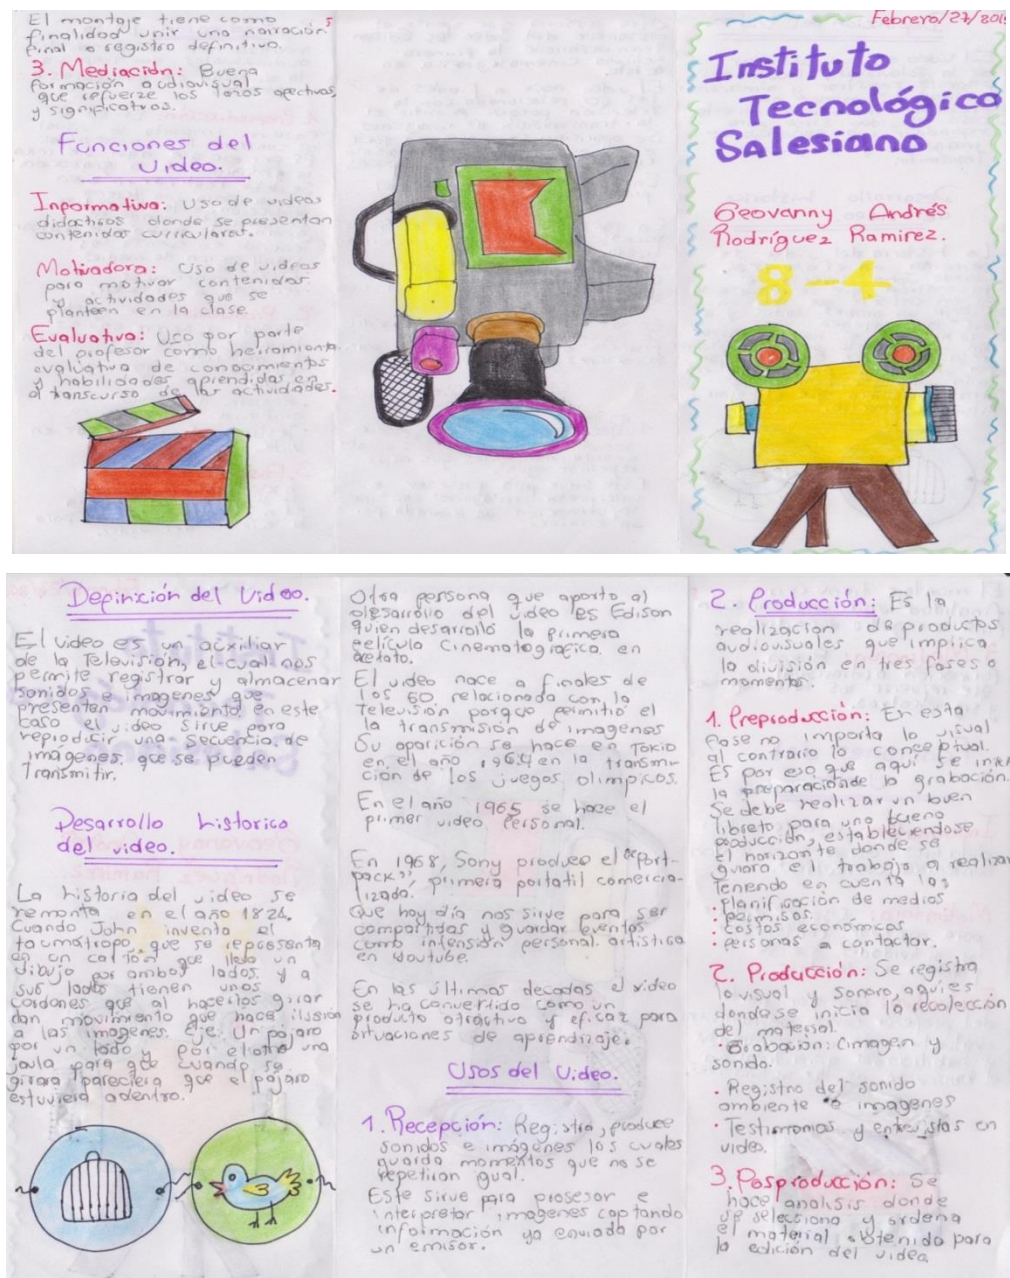 El montaje tiene como
finalidad unir una narración
final o registro definitivo.
3. Mediación: Buena
formación audiovisual
que refuerze los lazos afectivos
y significativos.
Funciones del
Video.
Informativa: Uso de videos
didacticos donde se presentan
contenidos curriculares.
Motivadora: Uso de videos
para motivar contenidos
y actividades que se
planteen en la clase
Evaluativa: Uso por parte
del profesor como herramienta
evaluativa de conocimientos
y habilidades aprendidas en
el transcurso de las actividades.
Febrero/27/201
Instituto
Tecnológico
Salesiano
Geovanny Andrés
Rodríguez Ramirez.
8-4
Definición del Video.
El video es un auxiliar
de la Televisión, el cual nos
permite registrar y almacenar
sonidos e imagenes que
presentan movimiento, en este
caso el video sirve para
reproducir una secuencia de
imágenes, que se pueden
Transmitir.
Desarrollo historico
del video.
La historia del video se
remonta en el año 1824.
Cuando John invento el
taumatropo, que se representa
en un cartón que lleva un
dibujo por ambos lados, y a
sus lados tienen unos
cordones que al hacerlos girar
dan movimiento que hace ilusión
a las imagenes. Eje: Un pajaro
por un lado y por el otro una
jaula para que cuando se
girara pareciera que el pajaro
estuviera adentro.
Otra persona que aporto al
desarrollo del video es Edison
quien desarrolló la primera
película Cinematografica en
acetato.
El video nace a finales de
los 60 relacionada con la
Televisión porque permitió el
la transmisión de imagenes
Su aparición se hace en Tokio
en el año 1964 en la transmi-
ción de los juegos olimpicos.
En el año 1965 se hace el
primer video Personal.
En 1968, Sony produce el "Port-
pack", primera portatil comercia-
lizada.
Que hoy día nos sirve para ser
compartidas y guardar eventos
como intensión personal artistica
en Youtube.
En las últimas decadas el video
se ha convertido como un
producto atractivo y eficaz para
situaciones de aprendizaje.
Usos del Video.
1. Recepción: Registra, produce
sonidos e imágenes los cuales
guarda momentos que no se
repetiran igual.
Este sirve para prosesar e
interpretar imagenes captando
información ya enviada por
un emisor.
2. Producción: Es la
realizacion de productos
audiovisuales que implica
la división en tres fases o
momentos.
1. Preproducción: En esta
fase no importa lo visual
al contrario lo conceptual.
Es por eso que aqui se inicia
la preparacion de la grabación.
Se debe realizar un buen
libreto para una buena
producción, estableciendose
el horizonte donde se
guiara el trabajo a realizar
Teniendo en cuenta los
· planificación de medios
· permisos.
· costos económicos
· personas a contactar.
2. Producción: Se registra
lo visual y sonoro, aqui es
donde se inicia la recolección
del material.
· Grabación: imagen y
sonido.
· Registro del sonido
ambiente e imagenes
· Testimonios y entrevistas en
video.
3. Posproducción: Se
hace analisis donde
se selecciona y ordena
el material obtenido para
la edición del video